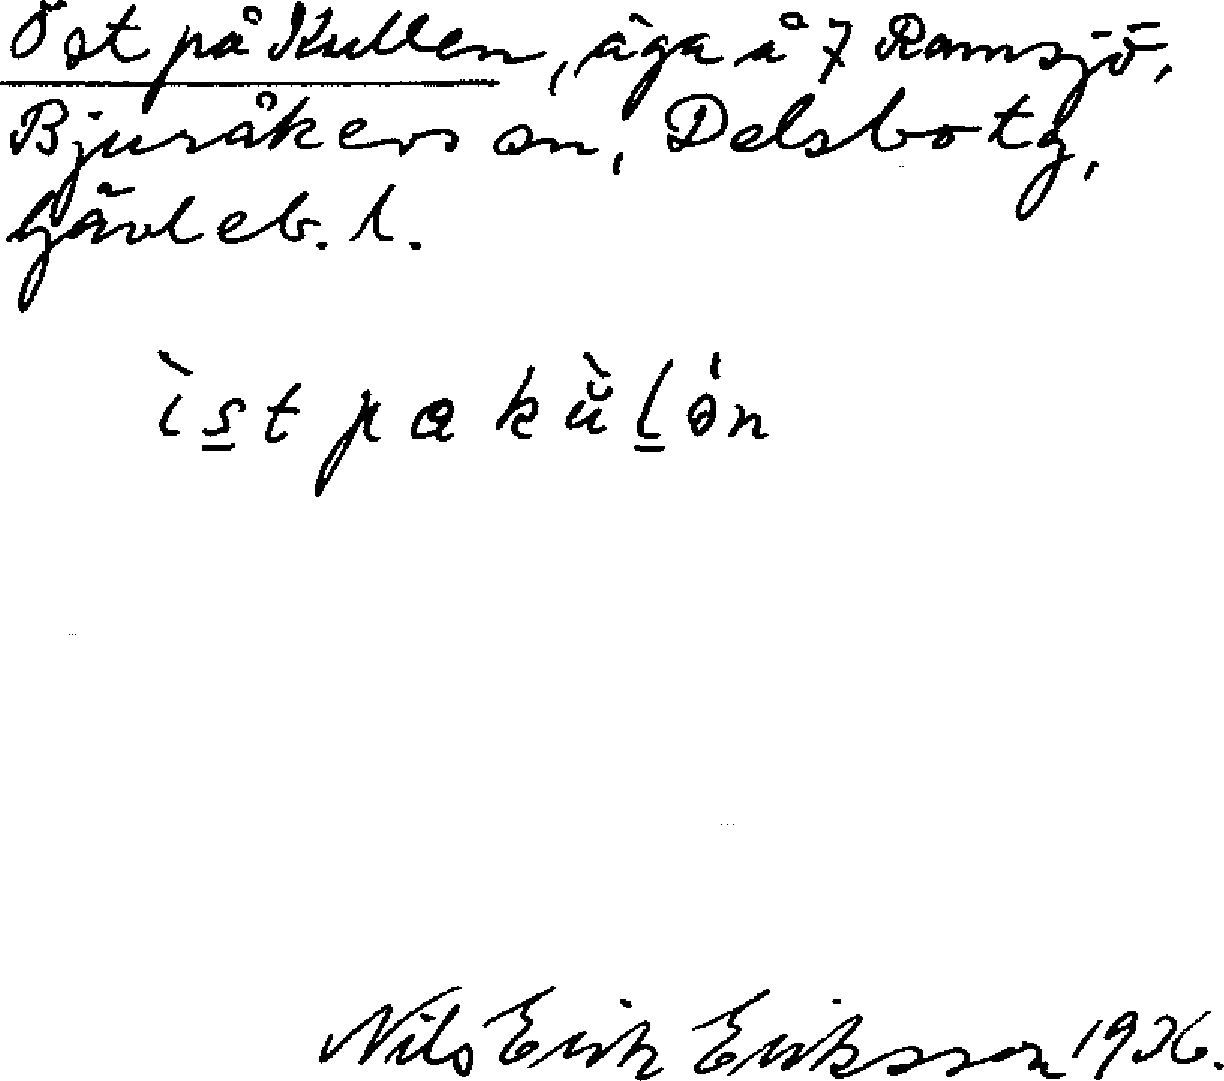 Öst på Kullen, äga å 7 Ramsjö,
Bjuråkers sn, Delsbo tg,
Gävleb. l.
ìstpakùlən
Nils Erik Eriksson 1936.